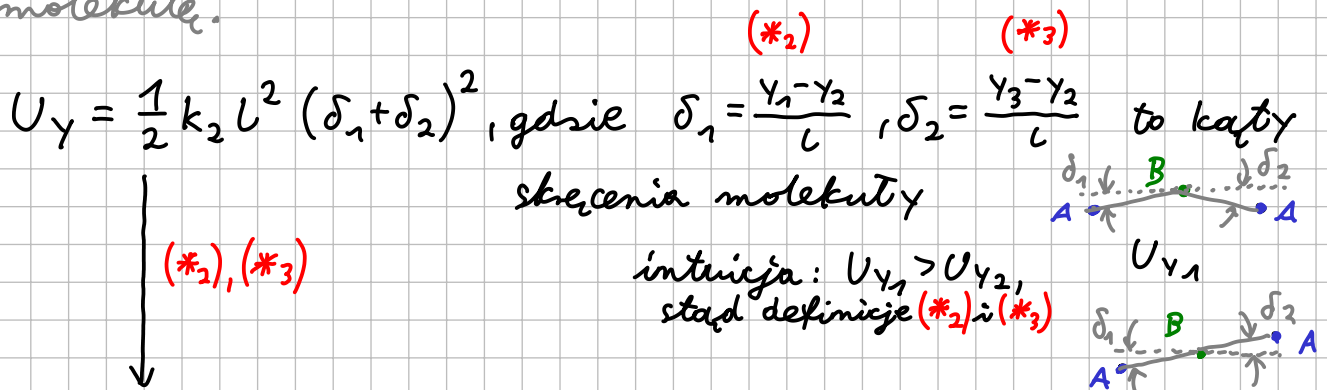 molekułę.
(*₂) (*₃)
U_y = 1/2 k₂ l² (δ₁+δ₂)², gdzie δ₁ = (y₁-y₂)/l , δ₂ = (y₃-y₂)/l to kąty
skręcenia molekuły
δ₁ B δ₂
A A
(*₂),(*₃)
intuicja: U_y₁ > U_y₂,
U_y₁
stąd definicje (*₂) i (*₃)
δ₁ B δ₂
A A